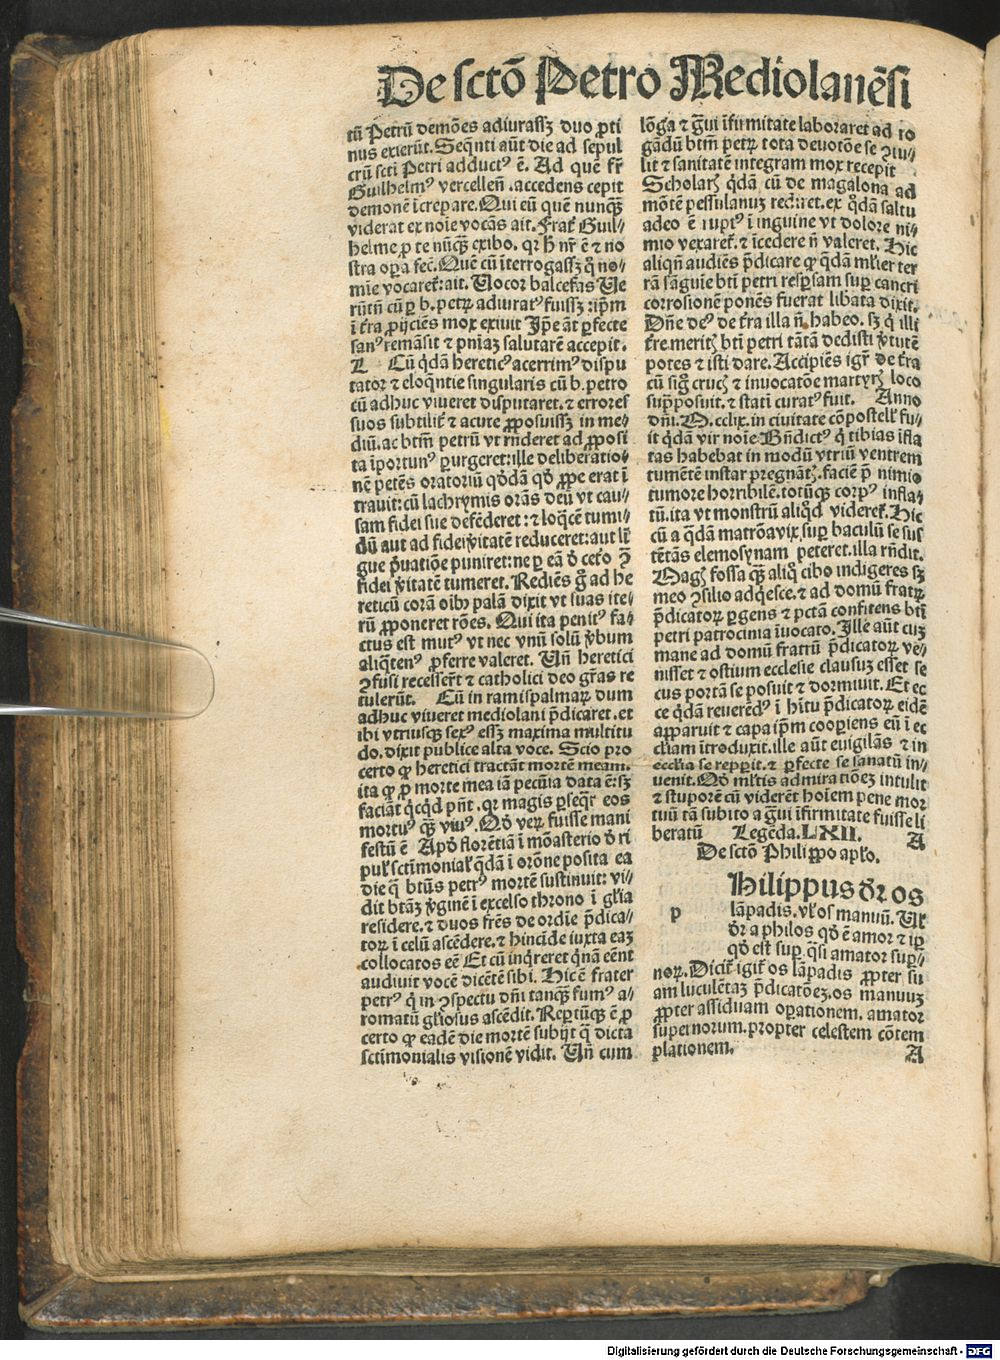 De sctō Petro Mediolanēsi
tū Petrū demōes adiurassꝫ duo ꝓti
nus exierūt. Seqn̄ti aūt die ad sepul
crū scti Petri adductꝰ ē. Ad quē fr̄
Guilhelmꝰ vercelleñ .accedens cepit
demonē īcrepare. Qui eū quē nunqꝫ
viderat ex noīe vocās ait. Frať Guil⸗
helme ꝓ te nūqꝫ exibo. qꝛ h̄ nr̄ ē ⁊ no
stra oꝑa fec̄. Quē cū īterrogassꝫ q̊ no⸗
mīe vocareť: ait. Uocor balcefas Ue
rūtn̄ cū ꝑ b. petꝝ adiuratꝰ fuissꝫ: ip̄m
ī t̄ra ꝓijciēs mox exiuit Ip̄e āt ꝑfecte
sanꝰ remāsit ⁊ pnīaꝫ salutarē accepit.
L Cū qdā hereticꝰ acerrimꝰ dispu
tator ⁊ eloqn̄tie singularis cū b. petro
cū adhuc viueret disputaret. ⁊ errores
suos subtiliť ⁊ acute ꝓposuissꝫ in me⸗
diū. ac btm̄ petrū vt rn̄deret ad ꝓposi
ta īportunꝰ ꝑurgeret: ille deliberatio⸗
nē petēs oratoriū qd̊dā qd̊ ꝓpe erat ī
trauit: cū lachrymis orās deū vt cau⸗
sam fidei sue defēderet: ⁊ loqcē tumi⸗
dū aut ad fidei v̄itatē reduceret: aut lī
gue p̄uatiōe puniret: ne ꝑ eā d̊ cet̊o ꝯ̄
fidei v̄itatē tumeret. Rediēs g̊ ad he
reticū corā oīb⁹ palā dixit vt suas ite⸗
rū ꝓponeret rōes. Qui ita penitꝰ fa⸗
ctus est mutꝰ vt nec vnū solū v̄bum
aliq̄tenꝰ ꝓferre valeret. Un̄ heretici
ꝯfusi recesser̄t ⁊ catholici deo gr̄as re
tulerūt. Cū in ramispalmaꝝ dum
adhuc viueret mediolani p̄dicaret. et
ibi vtriusqꝫ sexꝰ essꝫ maxima multitu
do. dixit publice alta voce. Scio pro
certo ꝙ heretici tractāt mortē meam.
ita ꝙ ꝓ morte mea iā pecūia data ē: sꝫ
faciāt qcqd pn̄t. qꝛ magis ꝑseqr̄ eos
mortuꝰ qꝫ viuꝰ. Qd̊ veꝝ fuisse mani
festū ē Apd̊ florētiā ī mōasterio d̊ ri
pul̓ sctimonial̓ qdā ī orōne posita ea
die q̄ btūs petrꝰ mortē sustinuit: vi⸗
dit btāꝫ v̄ginē ī excelso throno ī gl̄ia
residere. ⁊ duos fr̄es de ordīe p̄dica⸗
toꝝ ī celū ascēdere. ⁊ hincīde iuxta eaꝫ
collocatos eē Et cū inqreret qnā eēnt
audiuit vocē dicētē sibi. Hic ē frater
petrꝰ q̄ in ꝯspectu dn̄i tanqꝫ fumꝰ a⸗
romatū gl̄iosus ascēdit. Repertūqꝫ ē ꝓ
certo ꝙ eadē die mortē subijt q̄ dicta
sctimonialis visionē vidit. Un̄ cum
lōga ⁊ g̊ui īfirmitate laboraret ad to
gadū btm̄ petꝝ tota deuotōe se ꝯtu⸗
lit ⁊ sanitatē integram mox recepit
Scholarꝭ qdā cū de magalona ad
mōtē pessulanuꝫ rediret. ex qdā saltu
adeo ē ruptꝰ ī inguine vt dolore ni⸗
mio vexareť. ⁊ īcedere n̄ valeret. Hic
aliqn̄ audiēs p̄dicare ꝙ qdā ml̓ier ter
rā sāguīe bti petri respersam suꝑ cancri
corrosionē ponēs fuerat libata dixit.
Dn̄e deꝰ de t̄ra illa n̄ habeo. sꝫ q̄ illi
t̄re meritꝭ bti petri tātā dedisti v̄tutē
potes ⁊ isti dare. Accipiēs igr̄ de t̄ra
cū sig̊ crucꝭ ⁊ inuocatōe martyrꝭ loco
supposuit. ⁊ stati curatꝰ fuit. Anno
dn̄i. M. cclix. in ciuitate cōpostell̓ fu⸗
it qdā vir noīe Bn̄dictꝰ q̄ tibias īfla
tas habebat in modū vtriū ventrem
tumētē instar pregnātꝭ. faciē p̄ nimio
tumore horribilē. totūqꝫ corpꝰ infla⸗
tū. ita vt monstrū aliqd videreť. Hic
cū a qdā matrōa vix suꝑ baculū se sus
tētās elemosynam peteret. illa rn̄dit.
Magꝭ fossa qꝫ aliq̊ cibo indigeres sꝫ
meo ꝯsilio adq̄esce. ⁊ ad domū fratꝝ
p̄dicatoꝝ ꝑgens ⁊ pctā confitens bti
petri patrocinia īuocato. Ille aūt cuꝫ
mane ad domū fratrū p̄dicatoꝝ ve⸗
nisset ⁊ ostium ecclesie clausuꝫ esset se
cus portā se posuit ⁊ dormiuit. Et ec
ce qdā reuerēdꝰ ī hītu p̄dicatoꝝ eidē
apparuit ⁊ capa ip̄m cooperiens eū ī ec
cl̄iam ītroduxit. ille aūt euigilās ⁊ in
eccl̄ia se repperit. ⁊ perfecte se sanatū in⸗
uenit. Qd̊ ml̓tis admirationeꝫ intulit
⁊ stuporē cū viderēt hoīem pene mor
tuū tā subito a g̊ui īfirmitate fuisse li
beratū Legēda. LXII. A
De sctō Philippo apl̓o.
Hilippus dr̄ os
p lāpadis. vl̓ os manuū. Ul̓
dr̄ a philos qd̊ ē amor ⁊ yꝑ
qd̊ est suꝑ qsi amator suꝑ⸗
noꝝ. Diciť igiť os lāpadis ꝓpter su
am luculētaꝫ p̄dicatōeꝫ. os manuuꝫ
ꝓpter assiduam oꝑationem. amator
supernorum. propter celestem cōtem
plationem. A
Digitalisierung gefördert durch die Deutsche Forschungsgemeinschaft - DFG